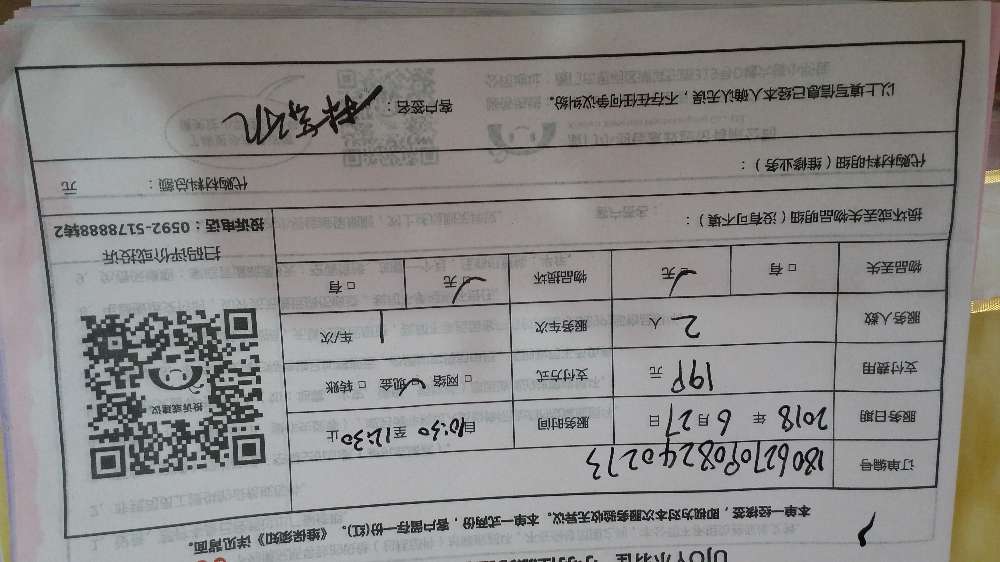 本单一经核签，即视为对本次服务验收无异议。本单一式两份，客户留存一份(红)。《维保须知》详见背面。
订单编号 1806270908240273
服务日期 2018 年 6 月 27 日 服务时间 自 10:30 至 12:30 止
支付费用 198 元 支付方式 □ 网络 现金 □ 转账
服务人数 2 人 服务车次 1 车/次
物品丢失 □ 有 □ 无 物品损坏 □ 无 □ 有
投诉或建议
扫码评价或投诉
投诉电话：0592-5178888转2
损坏或丢失物品明细（没有可不填）：
代购材料明细（维修业务）：
代购材料总额： 元
以上填写信息已经本人确认无误，不存在任何争议纠纷。
客户签名：